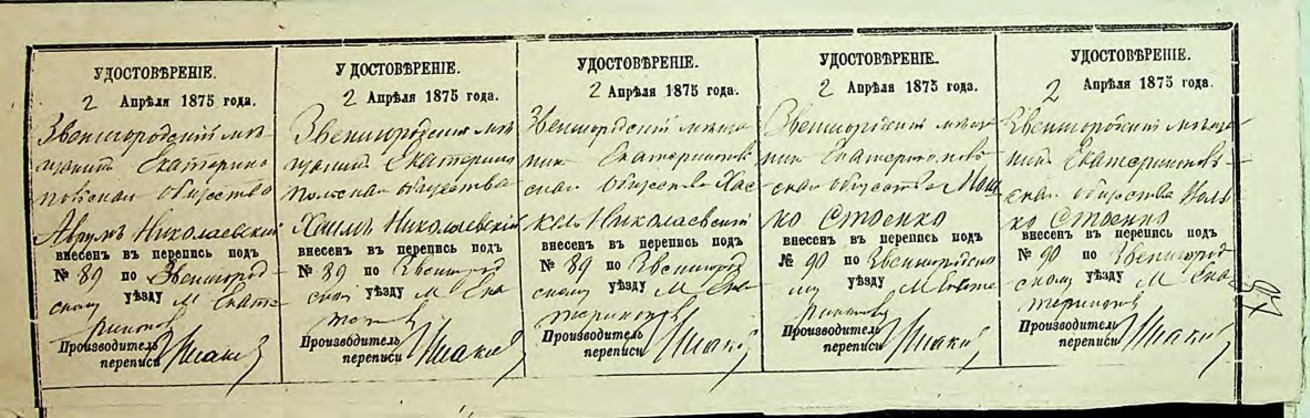 УДОСТОВѢРЕНІЕ.
2 Апрѣля 1875 года.
Звенигородскій мѣ-
щанинъ Екатерино
польскаго общества
Аврумъ Николаевскій
внесенъ въ перепись подъ
№ 89 по Звенигород
скому уѣзду М Екате
Производитель
переписи
УДОСТОВѢРЕНІЕ.
2 Апрѣля 1875 года.
Звенигородскій мѣ
щанинъ Екатерино
польскаго общества
Хаимъ Николаевскій
внесенъ въ перепись подъ
№ 89 по Звенигород
уѣзду М Ека
Производитель
переписи
УДОСТОВѢРЕНІЕ.
2 Апрѣля 1875 года.
Звенигородскій мѣща
нинъ Екатеринополь
скаго общества Хас
кель Николаевскій
внесенъ въ перепись подъ
№ 89 по Звенигород
скому уѣзду М Ека
теринополь
Производитель
переписи
УДОСТОВѢРЕНІЕ.
2 Апрѣля 1875 года.
Звенигородскій мѣща
нинъ Екатеринополь
скаго общества Мош
ко Стоенко
внесенъ въ перепись подъ
№ 90 по Звенигородско
му уѣзду М Екате
Производитель
переписи
УДОСТОВѢРЕНІЕ.
2 Апрѣля 1875 года.
Звенигородскій мѣща-
нинъ Екатеринополь-
скаго общества Воль
ко Стоенко
внесенъ въ перепись подъ
№ 90 по Звенигород
скому уѣзду М Ека
теринополь
Производитель
переписи